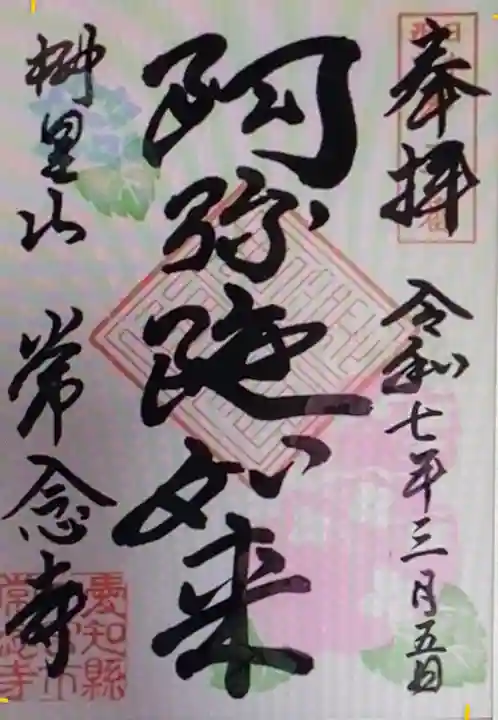 奉拝
令和七年三月五日
阿弥陀如来
樹里山 常念寺
愛知縣
常念寺